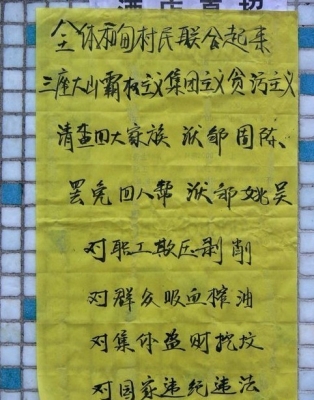 全体甸村民联合起来
三座大山霸权主义集团主义贪污主义
清查四大家族 邹周陈
罢免四人帮 邹姚吴
对职工欺压剥削
对群众吸血榨油
对集体盗财挖坟
对国家违纪违法